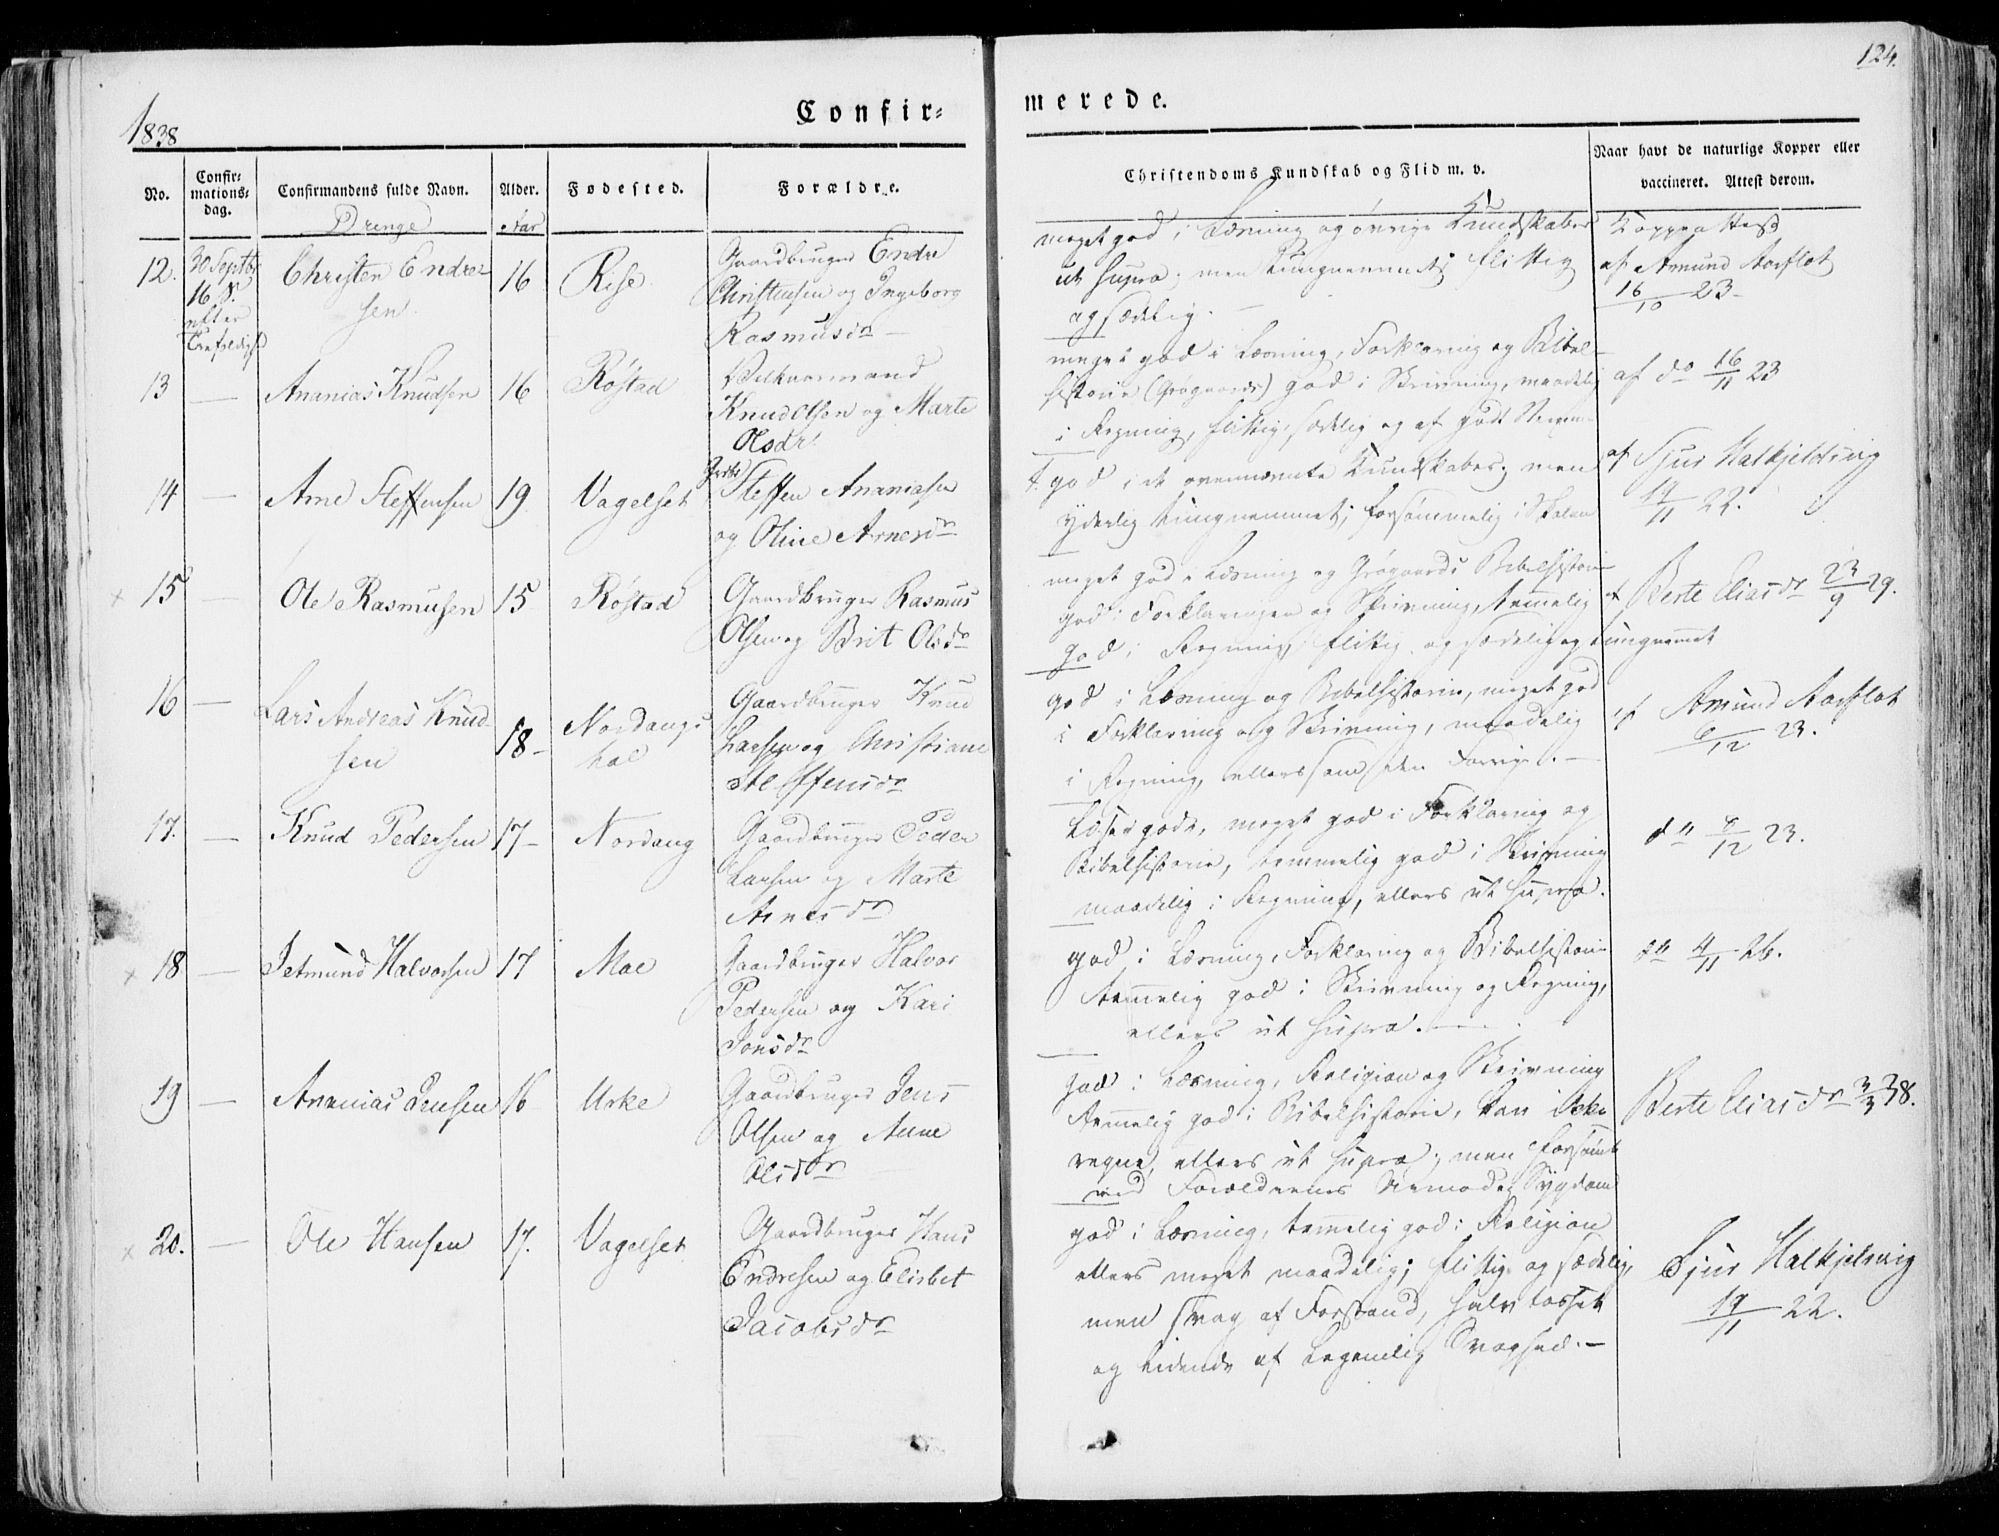 124.
1838
Confir=
merede.
No.
Confir=
mations=
dag.
Confirmandens fulde Navn.
Alder.
Fødested.
Forældre.
Christendoms Kundskab og Flid m. v.
Naar havt de naturlige Kopper eller
vaccineret. Attest derom.
Drenge
Aar
12.
30 Septbr
16 S.
efter
Trefoldigh
Christen Endre=
sen.
16
Rise
Gaardbruger Endre
Christensen og Ingeborg
Rasmusdr
meget god i Læsning og øvrige Kundskaber
ut supra; men tungnemmet, flittig
og sædelig.
Koppeattest
af Amund Aarflot
16/10 23
13
—
Ananias Knudsen
16
Røstad
Knud Olsen og Marte
Olsdr.
meget god i Læsning, Forklaring og Bibel-
historie (Grøgaards) god i Skrivning, maadelig
i Regning, flittig, sædelig og af godt Nemme
af do 16/11 23
14
—
Arne Steffensen
19
Vagelset
Grdbr
Steffen Ananiasen
og Oline Arnesdr
god i de ovennævnte Kundskaber; men
yderlig tungnemmet; forsømmelig i Skolen
af Sjur Halkjeldsvig
19/11 22.
× 15
—
Ole Rasmusen
15
Røstad
Gaardbruger Rasmus
Olsen og Brit Olsdr
meget god i Læsning og Grøgaards Bibelhistorie
god i Forklaringen og Skrivning, temmelig
god i Regning, flittig og sædelig og tungnemmet
af Berte Eliasdr 23/9 29.
16
—
Lars Andreas Knud
sen
18-
Nordangs
dal
Gaardbruger Knud
Larsen og Christiane
Steffensdr
god i Læsning og Bibelhistorie, meget god
i Forklaring og Skrivning, maadelig
i Regning, ellers som den Forrige.
af Amund Aarflot
6/12 23.
17.
—
Knud Pedersen
17-
Nordang
Gaardbruger Peder
Larsen og Marte
Arnesdr
Læser godt, meget god i Forklaring og
Bibelhistorie, temmelig god i Skrivning
maadelig i Regning, ellers ut supra.
do 8/12 23.
× 18
—
Jetmund Halvorsen
17
Moe
Gaardbruger Halvor
Pedersen og Kari
Jonsdr
god i Læsning, Forklaring og Bibelhistorie
temmelig god i Skrivning og Regning,
ellers ut supra.
do 4/11 26.
19
—
Ananias Jensen
16
Urke
Gaardbruger Jens
Olsen og Anne
Olsdr
god i Læsning, Religion og Skrivning
temmelig god i Bibelhistorie, kan ikke
regne, ellers ut supra; men forsømt
ved Forældrenes Armod og Sygdom
Berte Eliasdr 3/3 38.
× 20.
—
Ole Hansen
17.
Vagelset
Gaardbruger Hans
Endresen og Elisbet
Jacobsdr
god i Læsning, temmelig god i Religion
ellers meget maadelig; flittig og sædelig,
men svag af Forstand, halv tosset
og lidende af legemlig Svaghed.
Sjur Halkjelsvig
19/11 22.